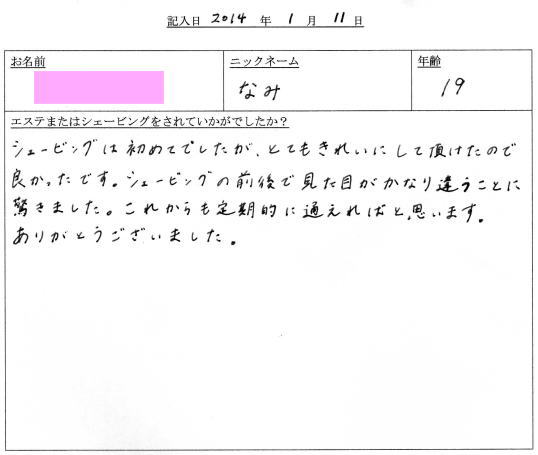 記入日 2014 年 1 月 11 日
お名前 ニックネーム 年齢
なみ 19
エステまたはシェービングをされていかがでしたか？
シェービングは初めてでしたが、とてもきれいにして頂けたので
良かったです。シェービングの前後で見た目がかなり違うことに
驚きました。これからも定期的に通えればと思います。
ありがとうございました。